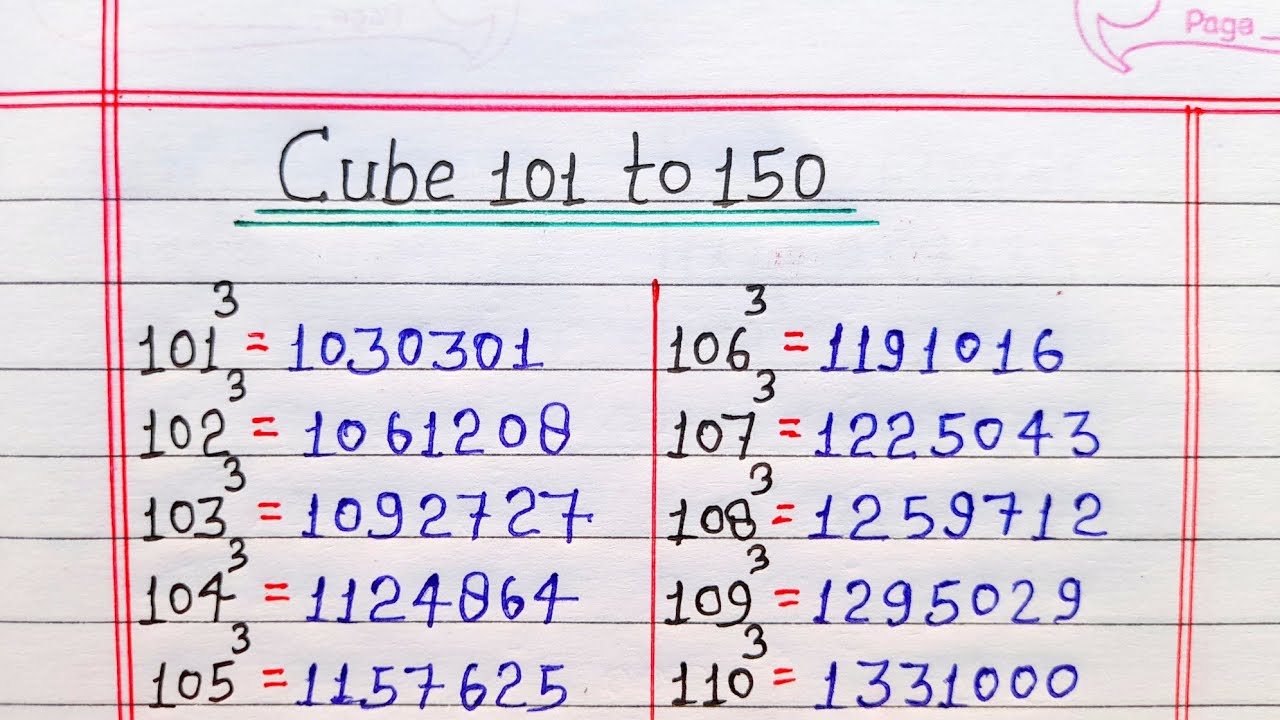 Page
Cube 101 to 150
101³ = 1030301
102³ = 1061208
103³ = 1092727
104³ = 1124864
105³ = 1157625
106³ = 1191016
107³ = 1225043
108³ = 1259712
109³ = 1295029
110³ = 1331000